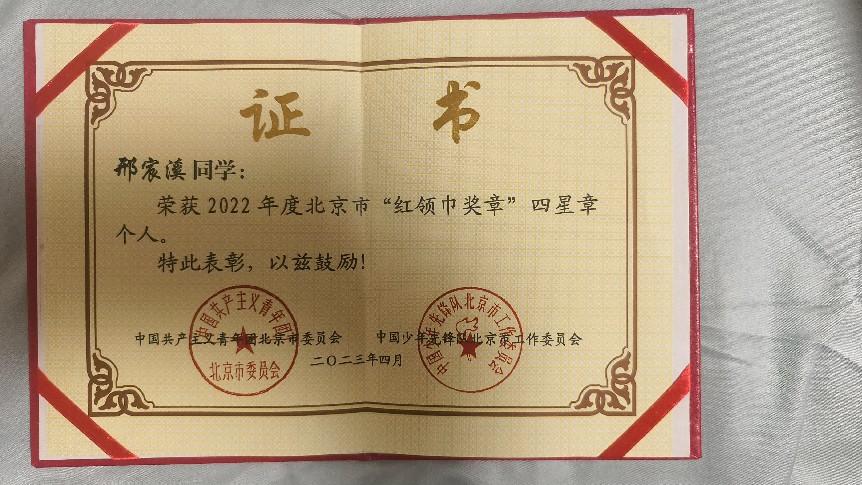 证书
邢宸溪同学：
荣获 2022 年度北京市“红领巾奖章”四星章
个人。
特此表彰，以兹鼓励！
中国共产主义青年团北京市委员会 中国少年先锋队北京市工作委员会
二〇二三年四月
中国共产主义青年团
北京市委员会
中国少年先锋队北京市工作委员会